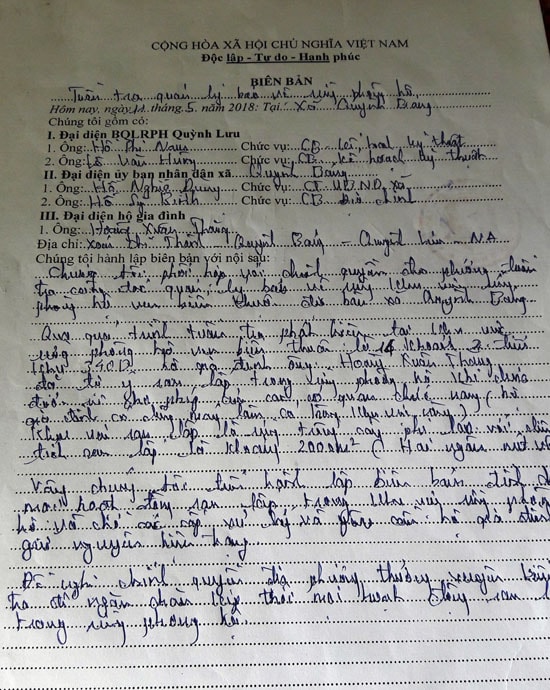 CỘNG HÒA XÃ HỘI CHỦ NGHĨA VIỆT NAM
Độc lập - Tự do - Hạnh phúc
BIÊN BẢN
Tuần tra quản lý bảo vệ rừng phòng hộ
Hôm nay, ngày 11 tháng 5 năm 2018: Tại: Xã Quỳnh Bảng
Chúng tôi gồm có:
I. Đại diện BQLRPH Quỳnh Lưu
1. Ông: Hồ Phi Nam Chức vụ: CB kế hoạch kỹ thuật
2. Ông: Lê Văn Hương Chức vụ: CB kế hoạch kỹ thuật
II. Đại diện ủy ban nhân dân xã Quỳnh Bảng
1. Ông: Hồ Nghĩa Dũng Chức vụ: CT UBND xã
2. Ông: Hồ Sỹ Chức vụ: CB Địa chính
III. Đại diện hộ gia đình
1. Ông: Hoàng Xuân Thắng
Địa chỉ: Xóm Thành Quỳnh Bảng - Quỳnh Lưu - NA
Chúng tôi hành lập biên bản với nội sau:
Chúng tôi phối hợp với chính quyền địa phương tuần
tra công tác quản lý bảo vệ rừng khu rừng
phòng hộ ven biển thuộc địa bàn xã Quỳnh Bảng
Qua quá trình tuần tra phát hiện tại khu vực
rừng phòng hộ ven biển thuộc lô 14 khoảnh 2 tiểu
khu 340D hộ gia đình ông Hoàng Xuân Thắng
đã tự ý san lấp trong rừng phòng hộ khi chưa
được sự cho phép của các cơ quan chức năng (hộ
gia đình có
Khu vực san lấp là rừng trồng cây phi lao với diện
tích san lấp là khoảng 2000m² (Hai ngàn mét
Vậy chúng tôi tiến hành lập biên bản đình chỉ
mọi hoạt động san lấp trong khu vực rừng phòng
hộ và chờ các cấp xử lý và yêu cầu hộ gia đình
giữ nguyên hiện trạng
Đề nghị chính quyền địa phương thường xuyên kiểm
tra để ngăn chặn kịp thời mọi hoạt động san
trong rừng phòng hộ.